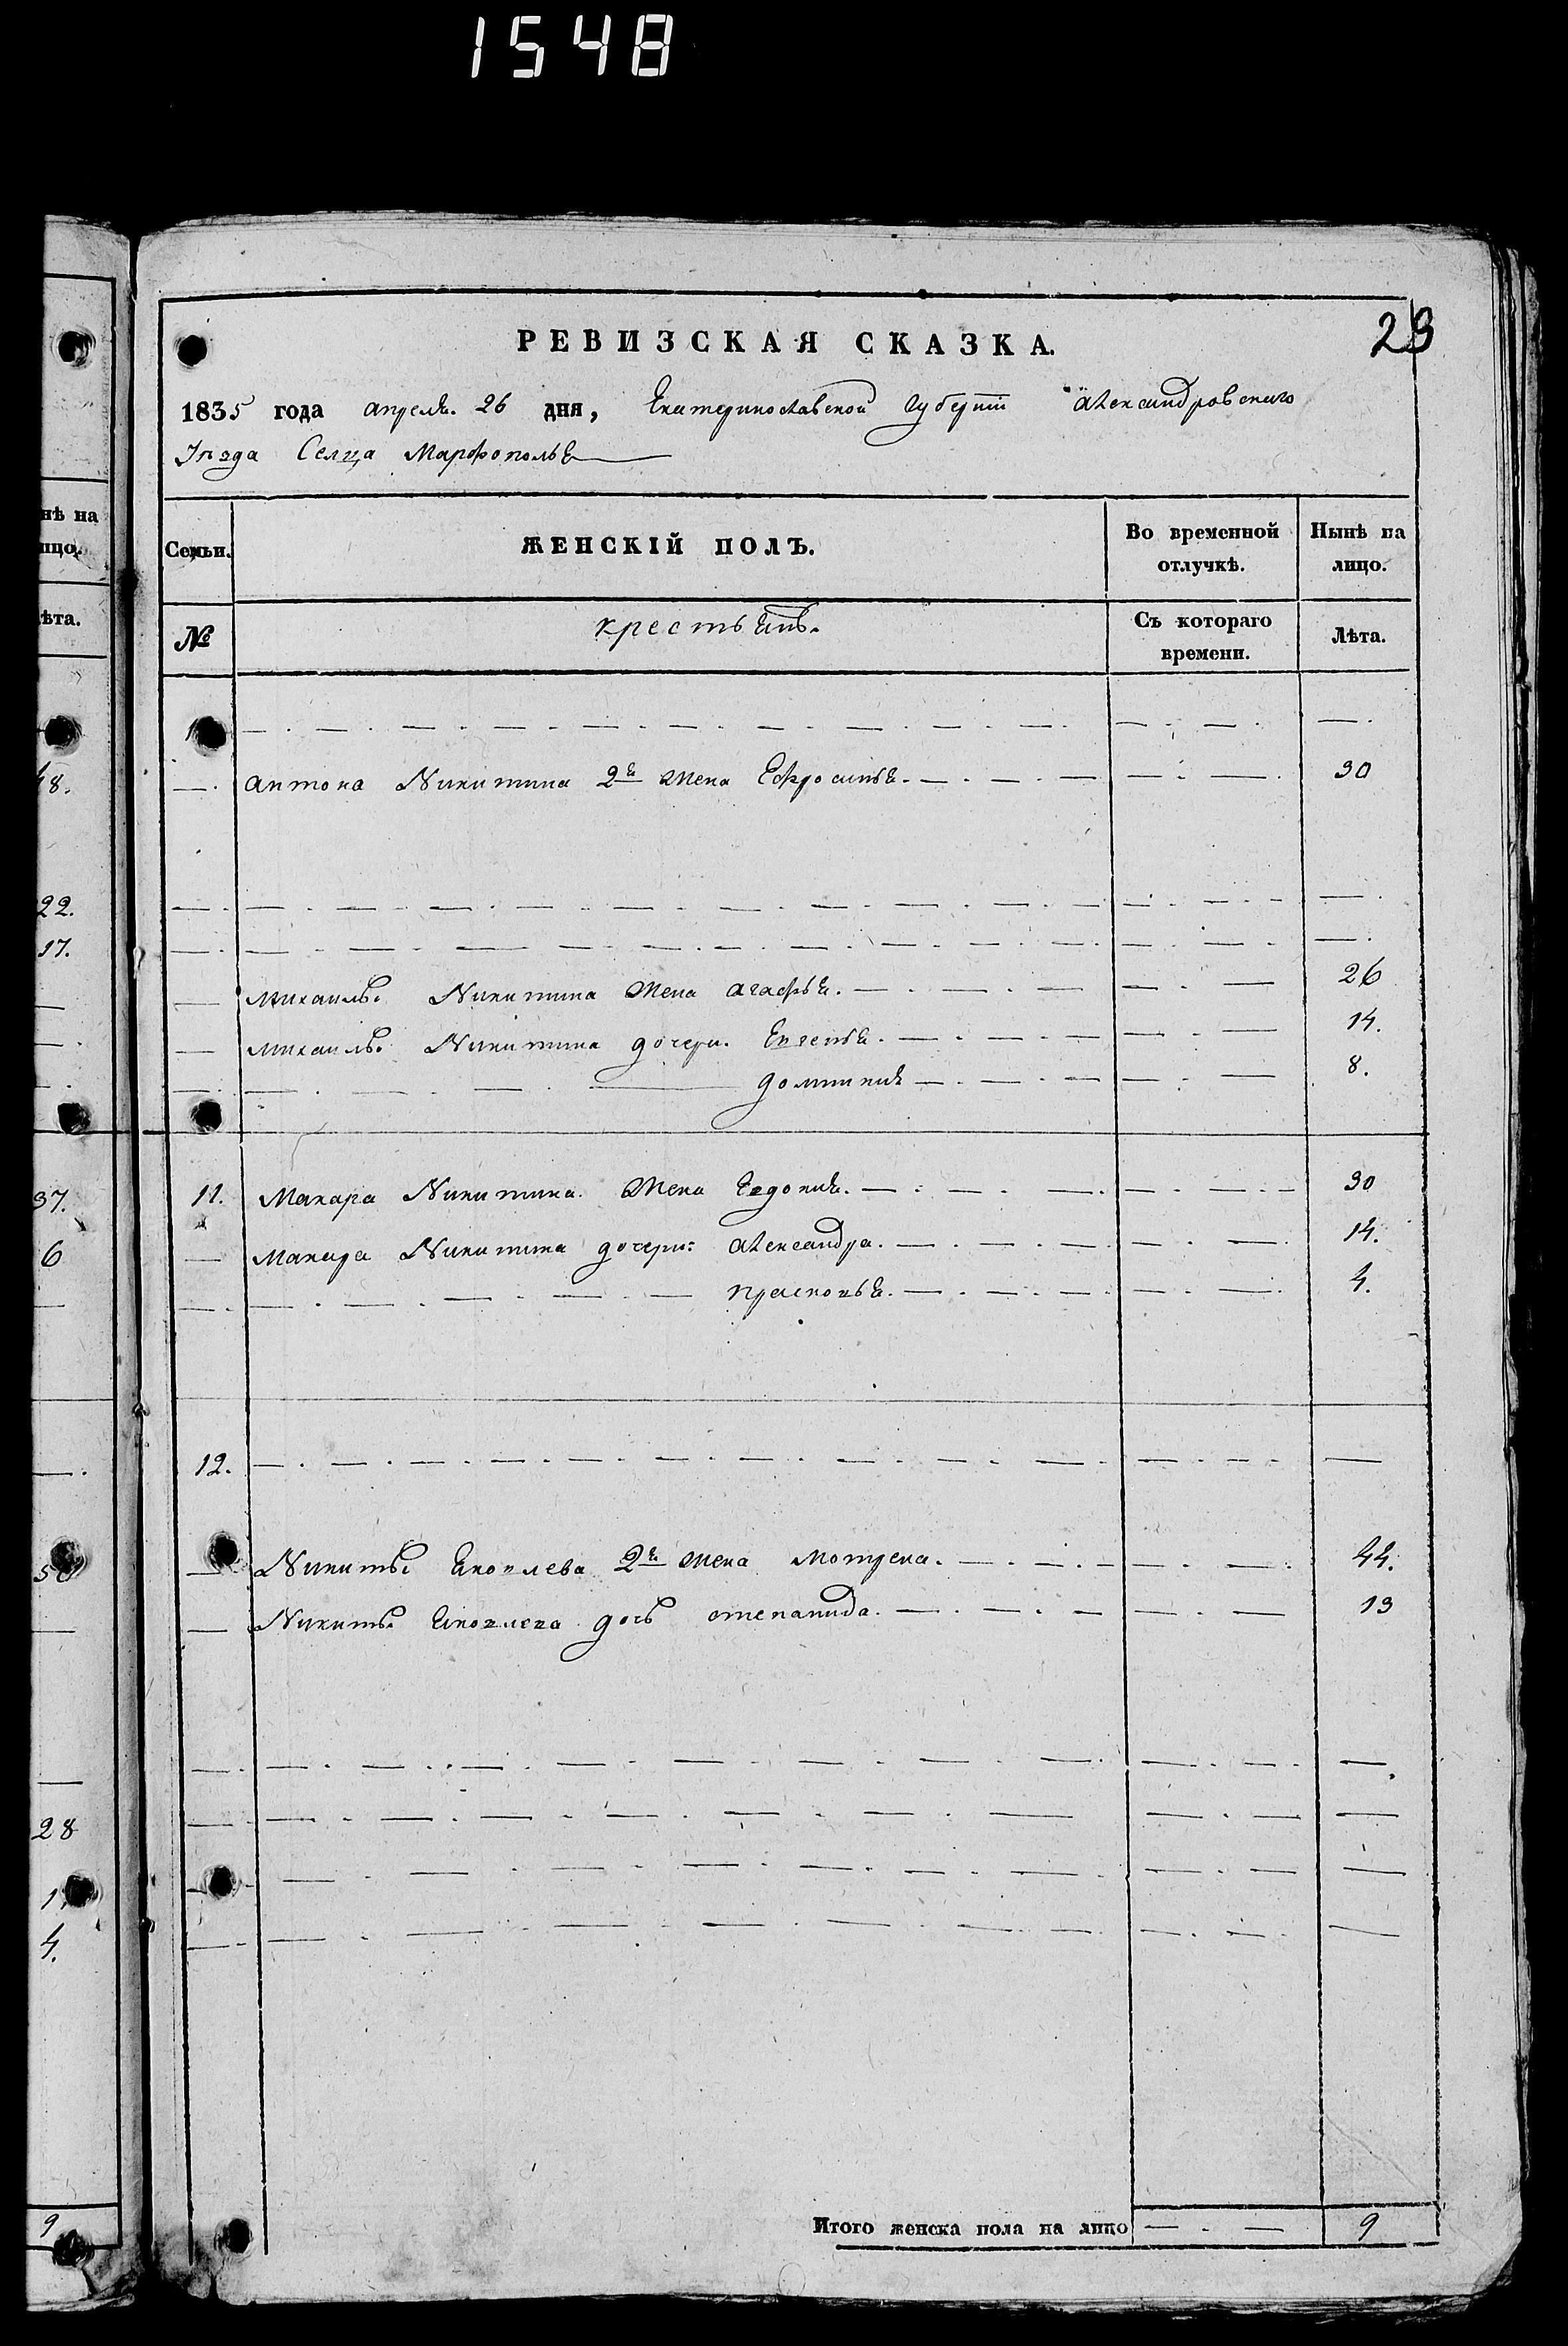 1548
23
РЕВИЗСКАЯ СКАЗКА.
1835 года апреля 26 дня, Екатеринославской губернiи Александровского
Уезда Селца Марфополья
нѣ на
лицо.
ѣта.
48.
22.
17.
37.
6
50
28
1.
4.
9
Семьи. ЖЕНСКIЙ ПОЛЪ. Во временной отлучкѣ. Нынѣ на лицо.
№ крестьянъ. Съ котораго времени. Лѣта.
Антона Никитина 2я жена Ефросинья. 30
Михаилы Никитина жена Агафья. 26
Михаилы Никитина дочери. Евгенья. 14.
Доминия 8.
11. Макара Никитина жена Евдокия. 30
Макара Никитина дочери: Александра. 14.
Прасковья. 4.
12.
Никиты Яковлева 2я жена Мотрена. 44.
Никиты Яковлева дочь степанида. 13
Итого женска пола на лицо 9